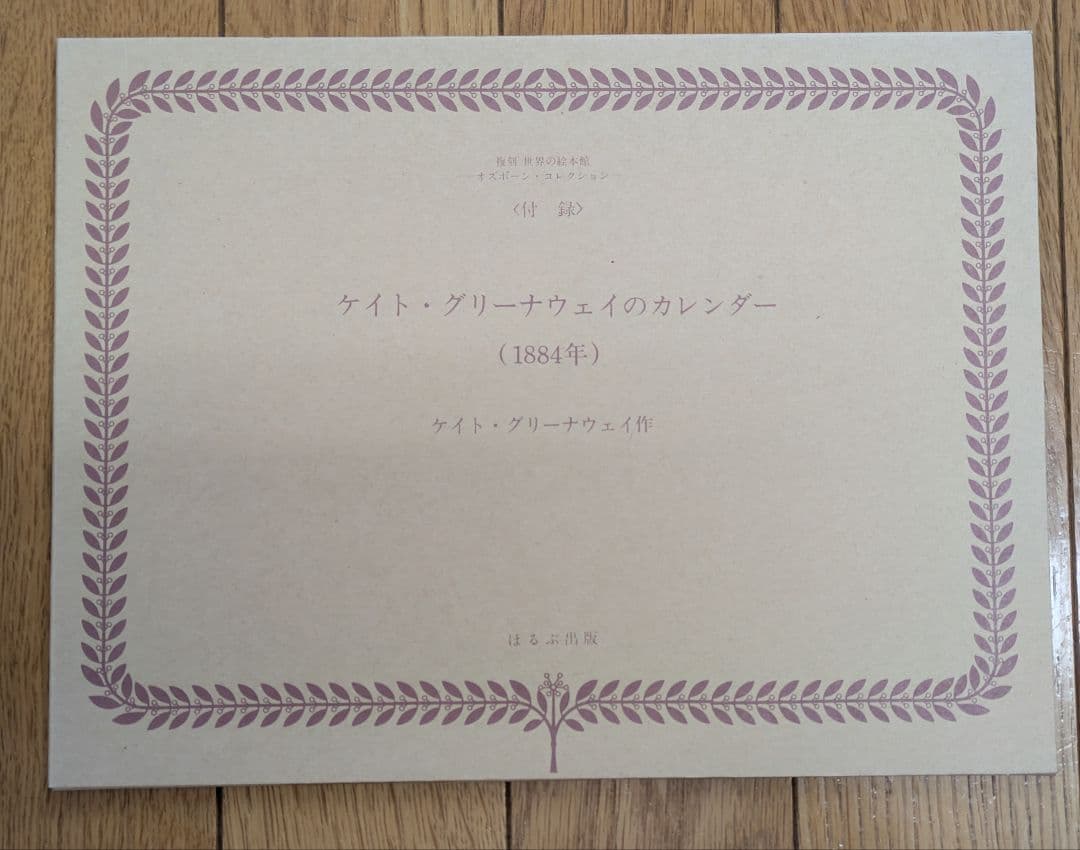 復刻 世界の絵本館
―オズボーン・コレクション―
〈付 録〉
ケイト・グリーナウェイのカレンダー
（1884年）
ケイト・グリーナウェイ作
ほるぷ出版